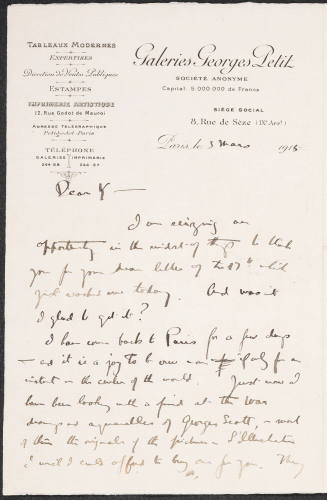 TABLEAUX MODERNES
EXPERTISES
Direction de Ventes Publiques
ESTAMPES
IMPRIMERIE ARTISTIQUE
12, Rue Godot de Mauroi
ADRESSE TÉLÉGRAPHIQUE
Petigodot-Paris
TÉLÉPHONE
GALERIES IMPRIMERIE
Galeries Georges Petit
SOCIÉTÉ ANONYME
Capital 5.000.000 de Francs
SIÈGE SOCIAL
8, Rue de Sèze (IXe Arrt)
Paris, le 3 Mars 191
Dear
I am seizing an
opportunity in the midst of things to thank
you for your dear letter of the 17th which
just reached me today. And was it
I glad to get it?
I have come back to Paris for a few days
— and it is a joy to be once more if only for an
instant in the centre of the world. Just now I
have been looking with a friend at the War
drawings and aquarelles of Georges Scott, most
of them the originals of the pictures in L'Illustration
I wish I could afford to buy one for you. They